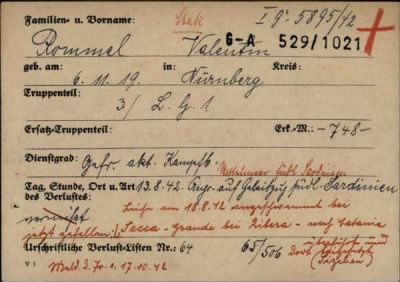 Familien- u. Vorname: Stak I 9ᵃ 5895/42
Rommel Valentin 6-A 529/1021 +
geb. am: in: Kreis:
6. 11. 19. Nürnberg
Truppenteil:
3/ L. G. 1
Ersatz-Truppenteil: Erk.-M.: -748-
Dienstgrad: Gefr. akt. Kampfb. Mittelmeer südl. Sardinien
Tag, Stunde, Ort u. Art 13.8.42 Angr. auf Geleitzug südl. Sardinien
des Verlustes: Leiche am 18.8.42 angeschwemmt bei
vermisst
jetzt gefallen. Secca-Grande bei Ribera - nach Catania
überführt und
Urschriftliche Verlust-Listen Nr.: 64 65/506 dort beigesetzt
V 1 Meld. d. 17.10.42 (Sizilien)